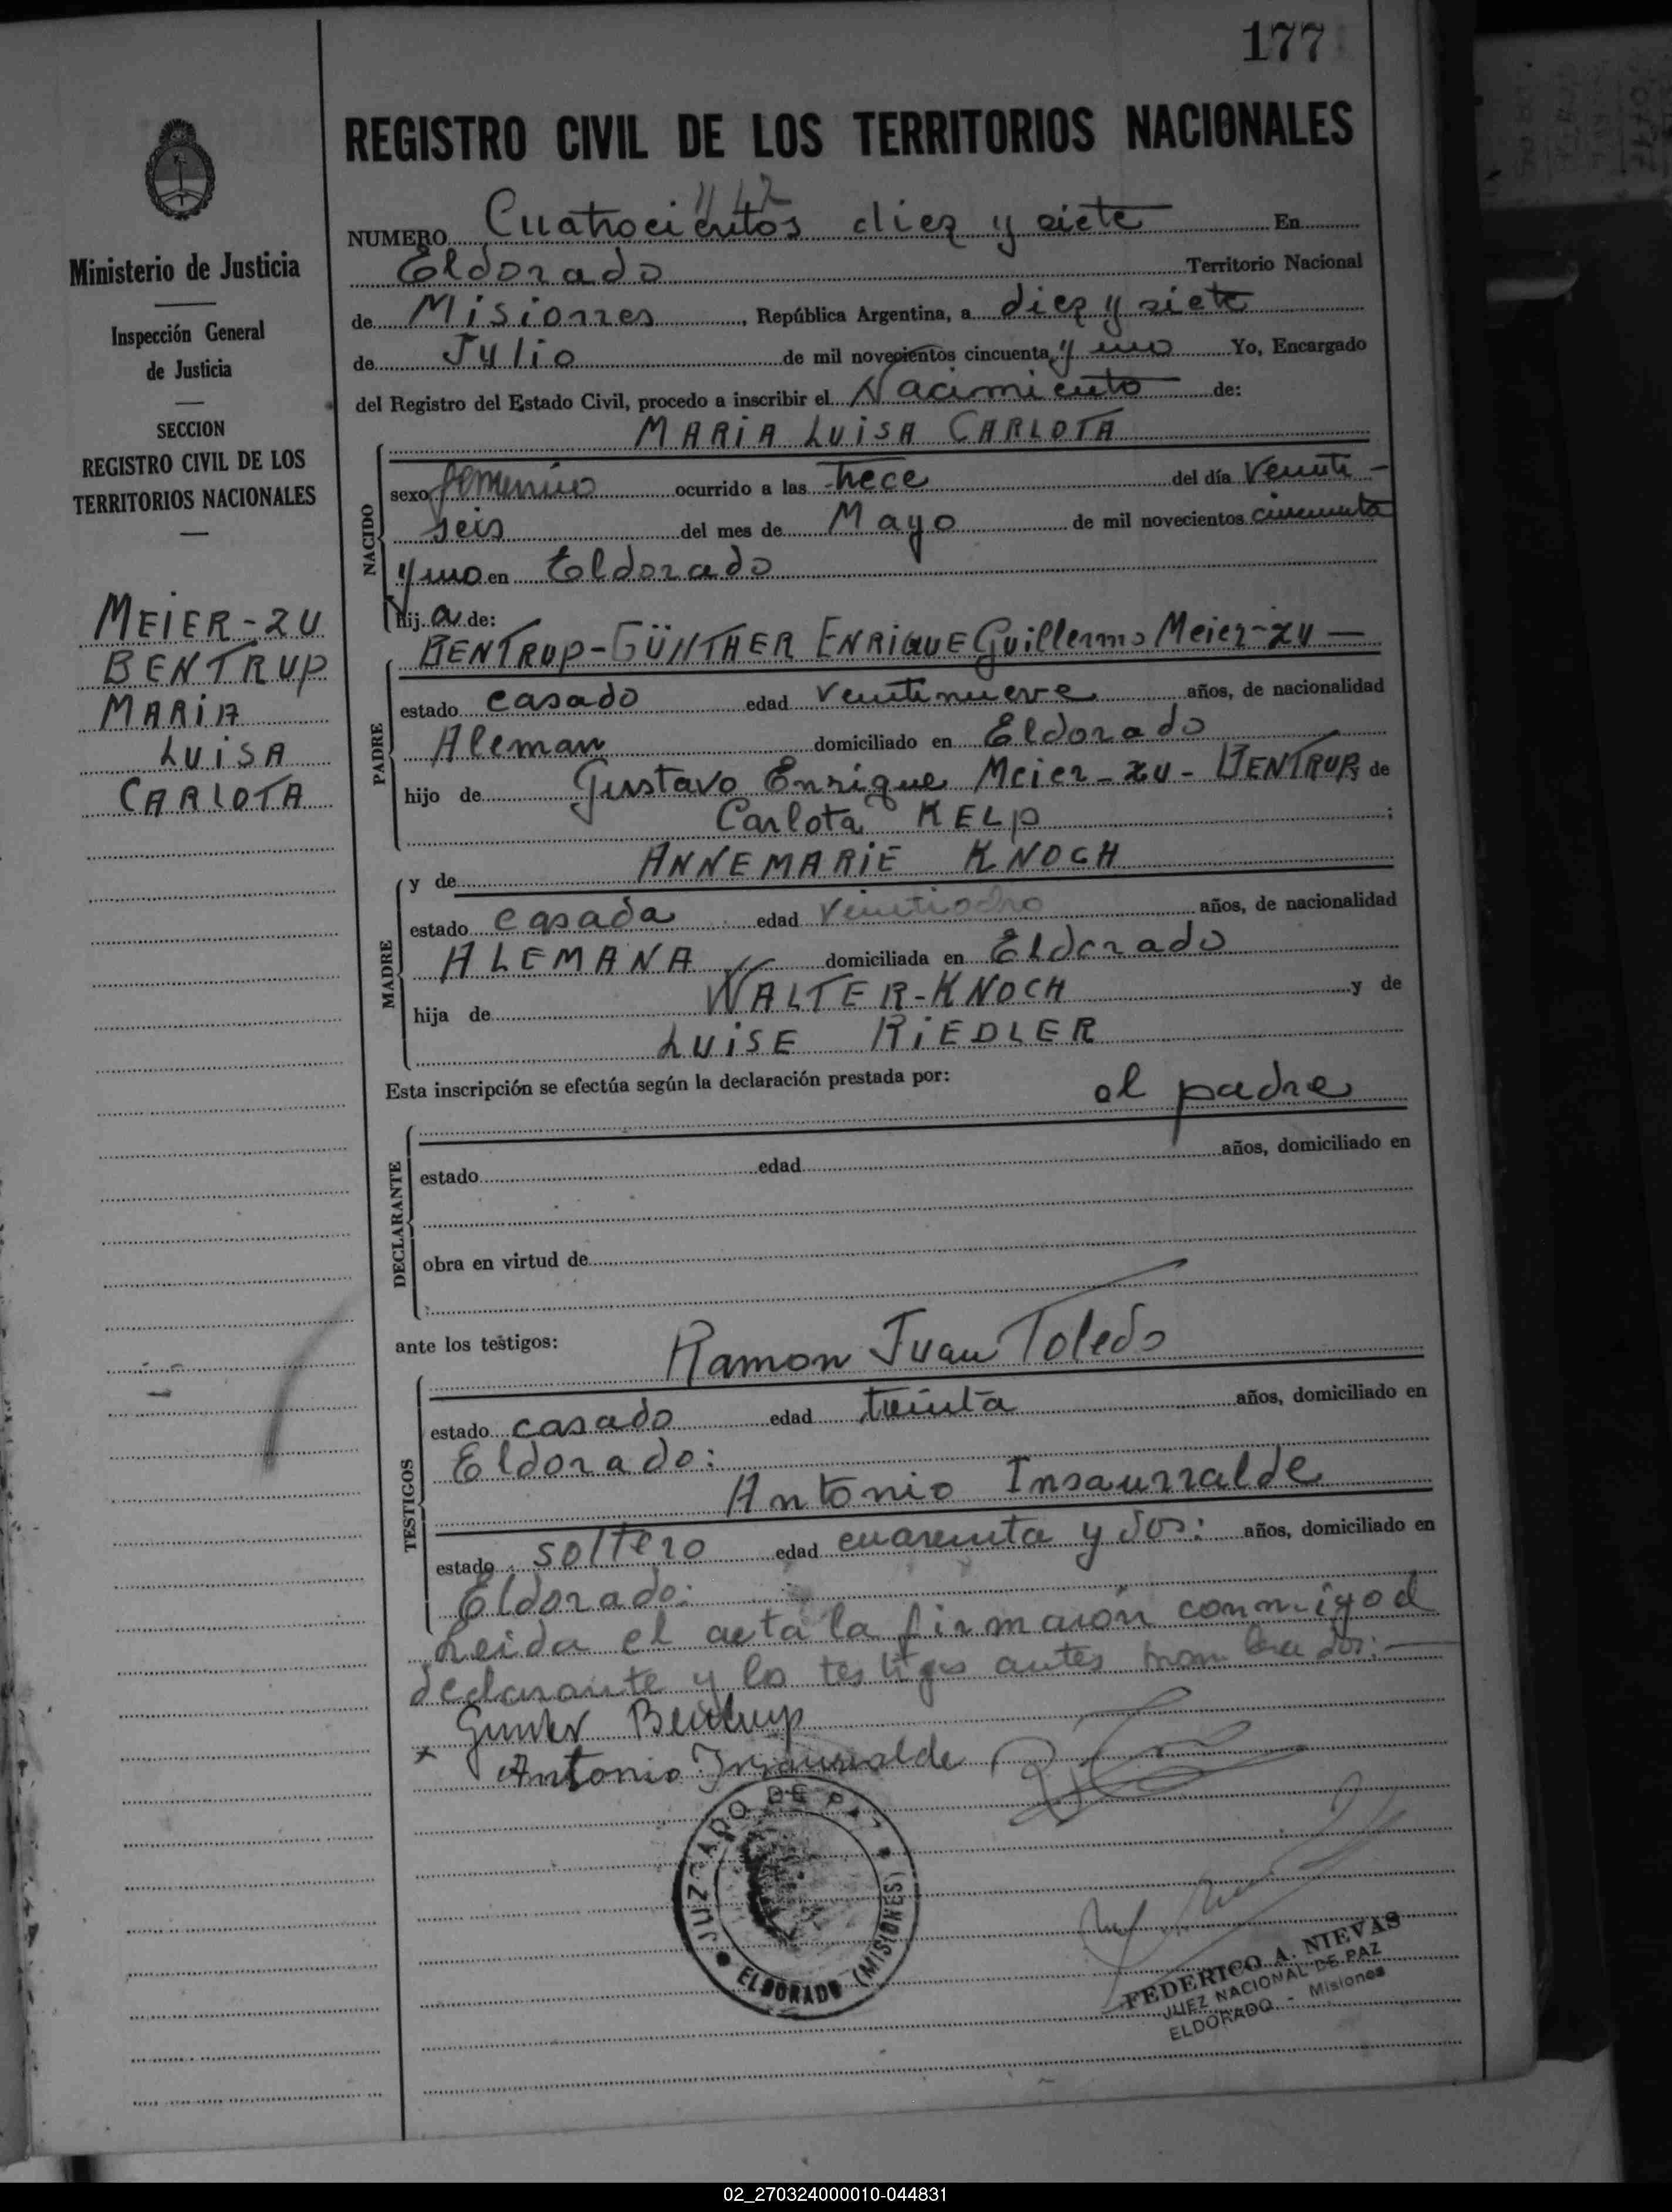 177
REGISTRO CIVIL DE LOS TERRITORIOS NACIONALES
Ministerio de Justicia
Inspección General
de Justicia
SECCION
REGISTRO CIVIL DE LOS
TERRITORIOS NACIONALES
MEIER-ZU
BENTRUP
MARiA
LUiSA
CARLOTA
NUMERO Cuatrocientos diez y siete En
Eldorado Territorio Nacional
de Misiones, República Argentina, a diez y siete
de Julio de mil novecientos cincuenta y uno Yo, Encargado
del Registro del Estado Civil, procedo a inscribir el Nacimiento de:
MARiA LUiSA CARLOTA
NACIDO
sexo femenino ocurrido a las trece del día Veinti-
seis del mes de Mayo de mil novecientos cincuenta
y uno en Eldorado
hij a de:
BENTRUP-GÜNTHER ENRiQUE Guillermo Meier-zu—
PADRE
estado casado edad Veintinueve años, de nacionalidad
Aleman domiciliado en Eldorado
hijo de Gustavo Enrique Meier-zu-BENTRUP y de
Carlota KELP;
y de ANNEMARiE KNOCH
MADRE
estado casada edad Veintiocho años, de nacionalidad
ALEMANA domiciliada en Eldorado
hija de WALTER-KNOCH y de
LUiSE RiEDLER
Esta inscripción se efectúa según la declaración prestada por: el padre
DECLARANTE
estado edad años, domiciliado en
obra en virtud de
ante los testigos: Ramon Juan Toledo
TESTIGOS
estado casado edad treinta años, domiciliado en
Eldorado:
Antonio Insaurralde
estado soltero edad cuarenta y dos: años, domiciliado en
Eldorado:
Leida el acta la firmaron conmigo el
declarante y los testigos antes nombrados:—
Gunter Bentrup
x Antonio Insaurralde
JUZGADO DE PAZ
ELDORADO (MISIONES)
FEDERICO A. NIEVAS
JUEZ NACIONAL DE PAZ
ELDORADO - Misiones
02_270324000010-044831